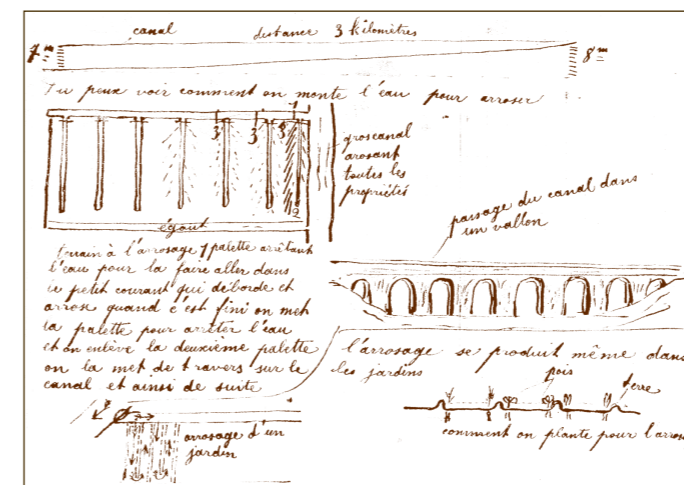 canal distance 3 kilomètres
7 m 8 m
Tu peux voir comment on monte l'eau pour arroser
1
3 3 3
2
égout
gros canal
arosant
toutes les
propriétés
passage du canal dans
un vallon
terrain à l'arrosage 1 palette arrêtant
l'eau pour la faire aller dans
le petit courant qui déborde et
arrose quand c'est fini on met
la palette pour arrêter l'eau
et on enlève la deuxième palette
on la met de travers sur le
canal et ainsi de suite
l'arrosage se produit même dans
les jardins
pois
terre
comment on plante pour l'arros
arrosage d'un
jardin